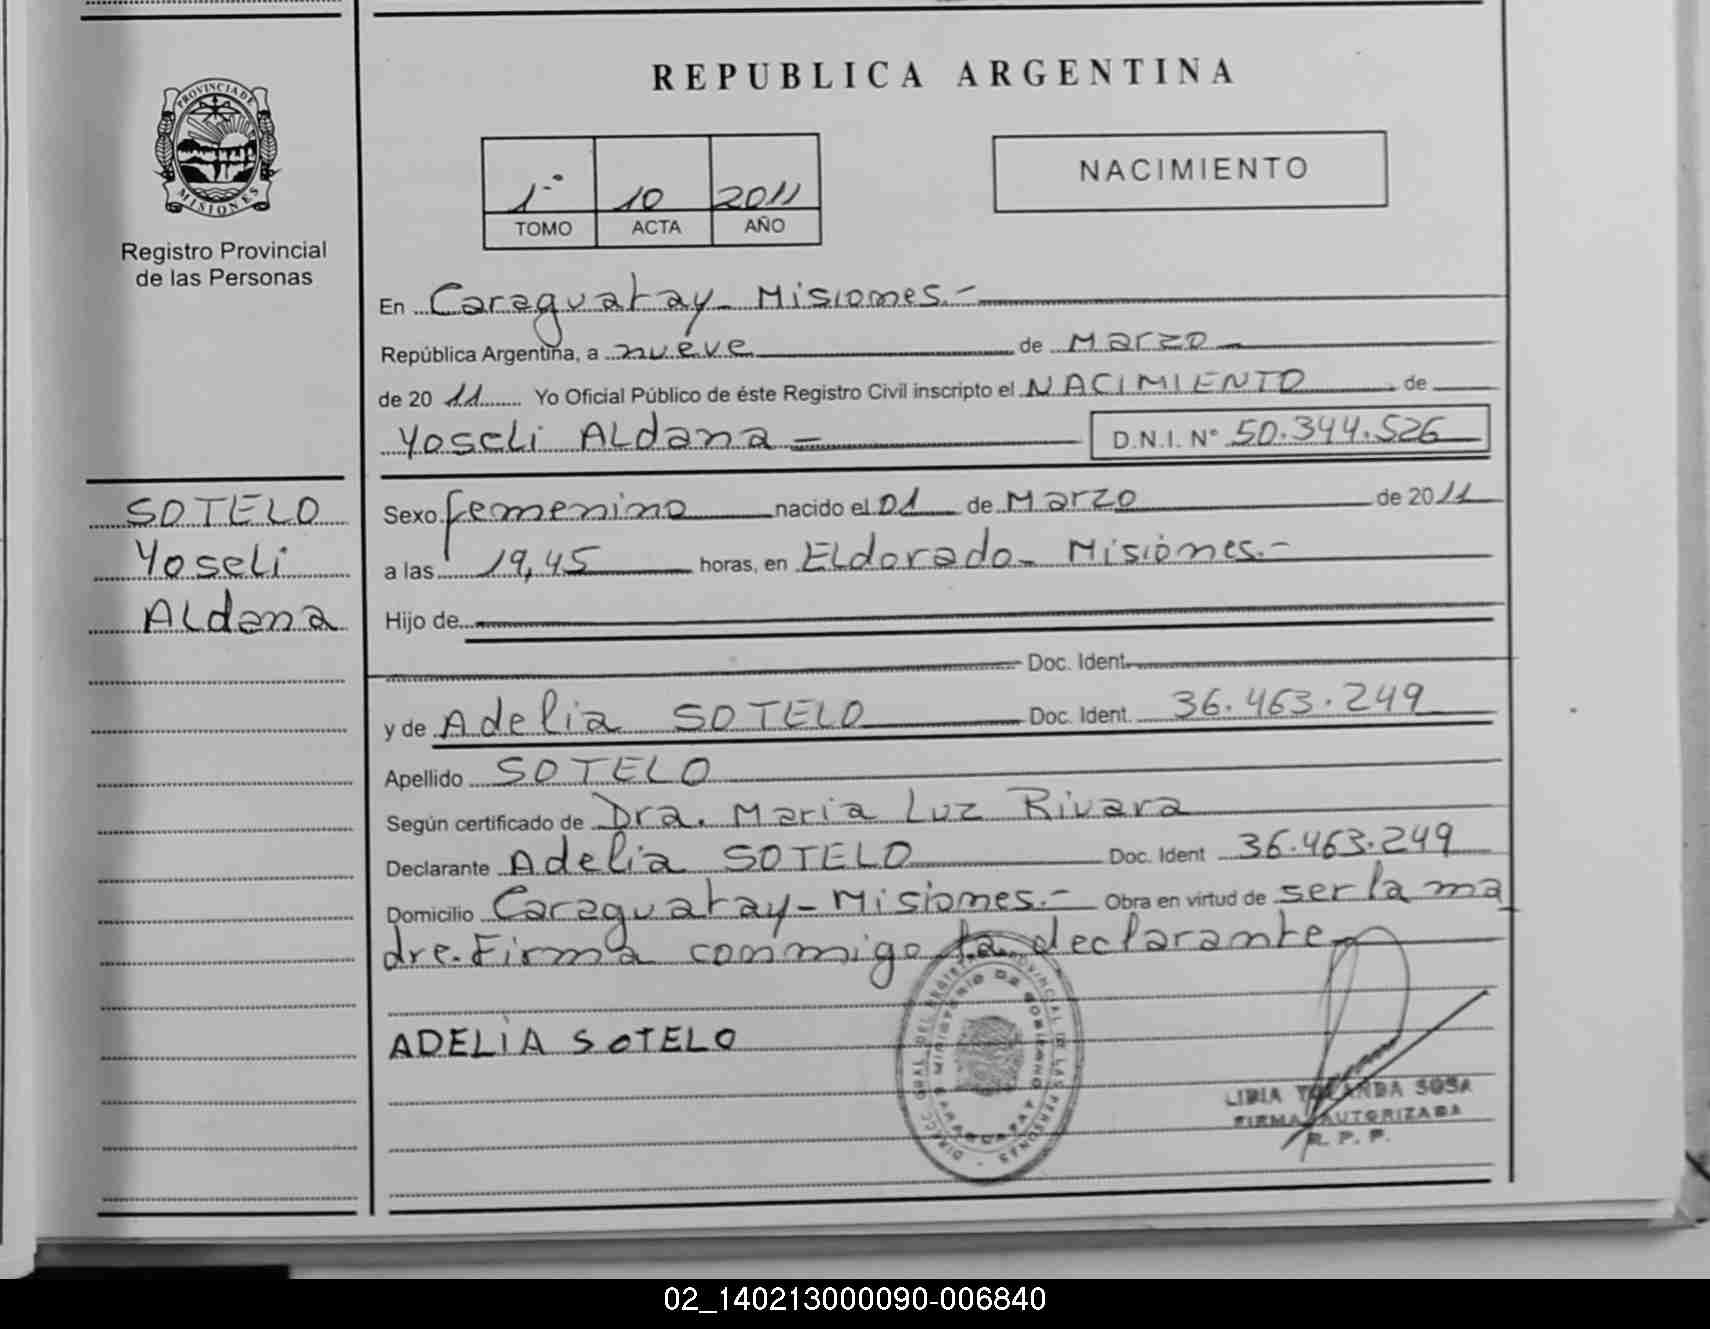 PROVINCIA DE
MISIONES
Registro Provincial
de las Personas
SOTELO
Yoseli
ALdana
REPUBLICA ARGENTINA
1º 10 2011
TOMO ACTA AÑO
NACIMIENTO
En Caraguatay - Misiones.-
República Argentina, a nueve de Marzo
de 2011 Yo Oficial Público de éste Registro Civil inscripto el NACIMIENTO de
Yoseli ALdana = D.N.I. Nº 50.344.526
Sexo femenino nacido el 01 de Marzo de 2011
a las 19,45 horas, en ELdorado - Misiones.-
Hijo de
Doc. Ident.
y de Adelia SOTELO Doc. Ident. 36.463.249
Apellido SOTELO
Según certificado de Dra. Maria Luz Rivara
Declarante Adelia SOTELO Doc. Ident 36.463.249
Domicilio Caraguatay - Misiones.- Obra en virtud de ser la ma
dre. Firma conmigo la declarante
ADELIA SOTELO
DIRECC. GRAL. DEL REGISTRO PROVINCIAL DE LAS PERSONAS
MINISTERIO DE GOBIERNO
LIDIA YOLANDA SOSA
FIRMA AUTORIZADA
R. P. P.
02_140213000090-006840